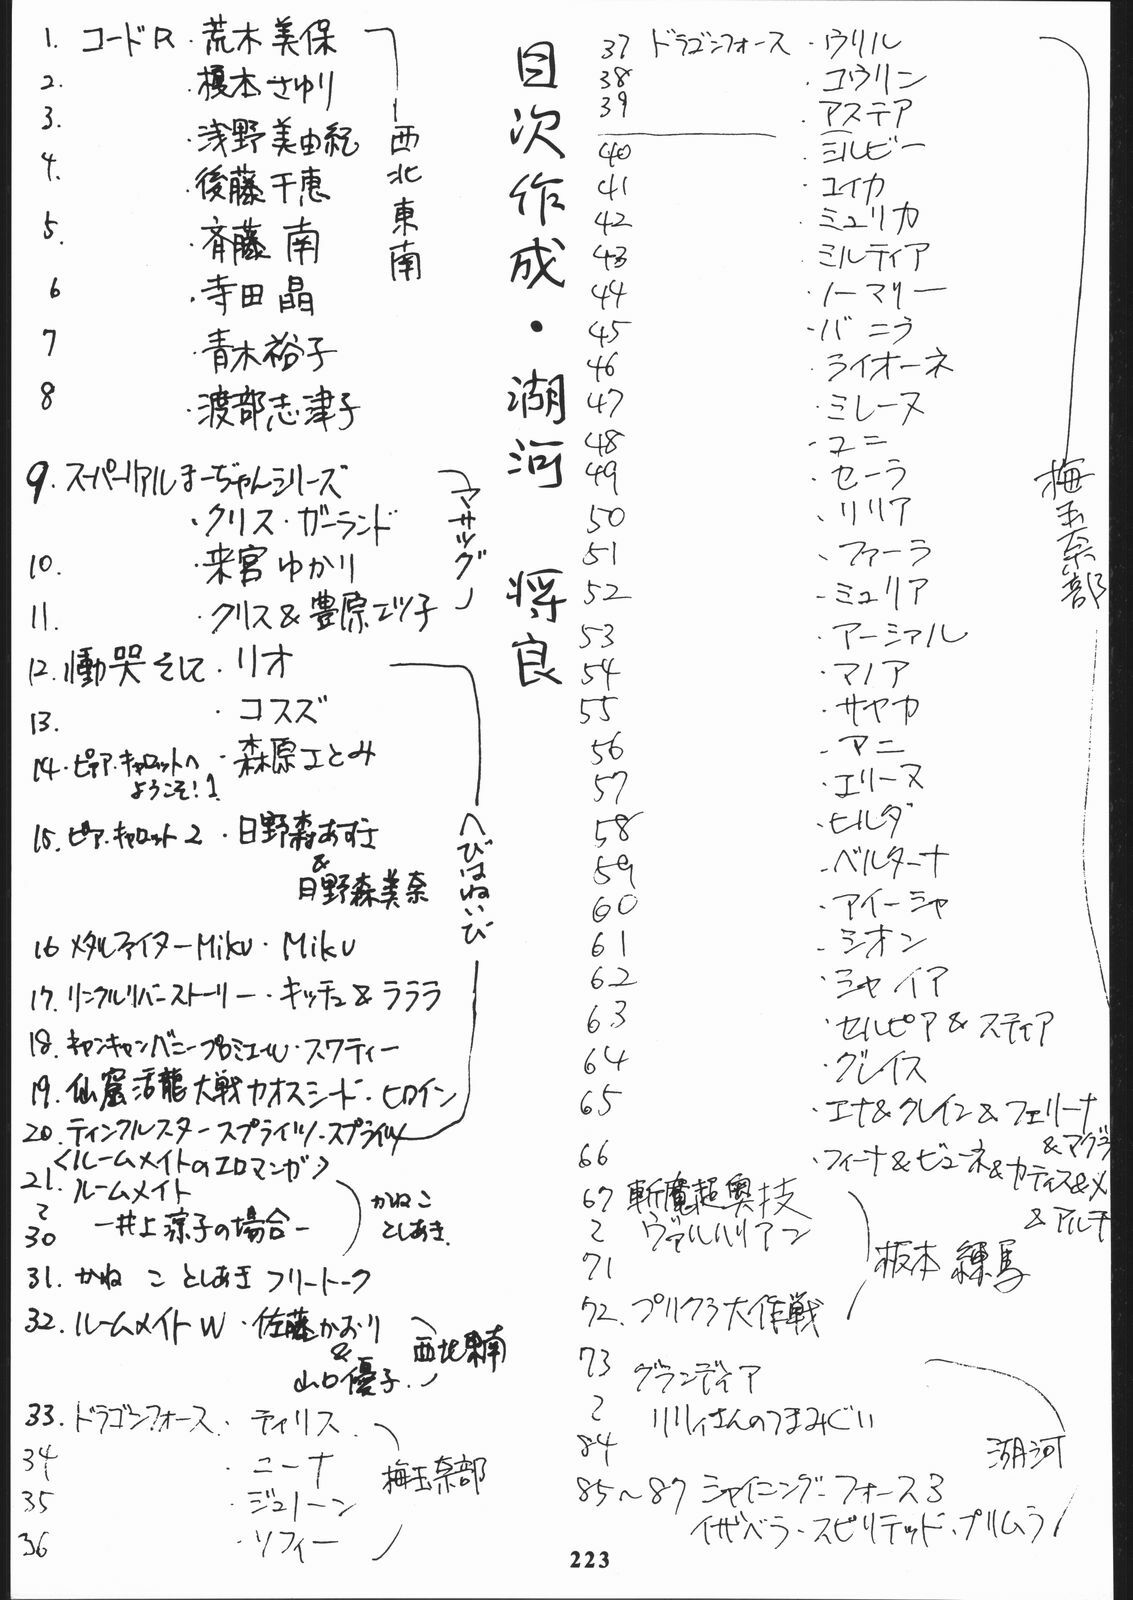 1. コードR・荒木美保
2. ・榎本さゆり
3. ・浅野美由紀
4. ・後藤千恵
5. ・斉藤 南
6 ・寺田晶
7 ・青木裕子
8 ・渡部志津子
西北東南
9. スーパーリアルまーぢゃんシリーズ
・クリス・ガーランド
10. ・来宮ゆかり
11. ・クリス&豊原エツ子
マサツグ
12. 慟哭そして・リオ
13. ・コスズ
14・ピア・キャロットへ ・森原さとみ
ようこそ!1
15. ピア・キャロット2・日野森あずさ
&
日野森美奈
16 メタルファイターMiku・Miku
17. リンクルリバーストーリー・キッチュ&ラララ
18. キャンキャンバニープルミエール・スワティー
19. 仙窟活龍大戦カオスシード・ヒロイン
20. ティンクルスタースプライツ・スプライツ
へびはねいび
<ルームメイトのエロマンガ>
21. ルームメイト
〜 ー井上涼子の場合ー
30
かねこ
としあき
31. かねこ としあき フリートーク
32. ルームメイトW・佐藤かおり
&
山口優子
西北東南
33. ドラゴンフォース・ティリス
34 ・ニーナ
35 ・ジュリーン
36 ・ソフィー
梅玉奈部
目次作成・湖河 将良
37 ドラゴンフォース・ウリル
38 ・コウリン
39 ・アステア
40 ・シルビー
41 ・ユイカ
42 ・ミュリカ
43 ・ミルティア
44 ・ノーマリー
45 ・バニラ
46 ・ライオーネ
47 ・ミレーヌ
48 ・ユニ
49 ・セーラ
50 ・リリア
51 ・ファーラ
52 ・ミュリア
53 ・アーシァル
54 ・マノア
55 ・サヤカ
56 ・アニ
57 ・エリーヌ
58 ・ヒルダ
59 ・ベルターナ
60 ・アイーシャ
61 ・シオン
62 ・シャイア
63 ・セルピア&スティア
64 ・グレイス
65 ・エナ&クレイン&フェリーナ
&マグラ
66 ・フィーナ&ビューネ&カーティス&メ
&アルチ
梅玉奈部
67 斬魔超奥技
〜 ヴァルハリアン
71
72. プリクラ大作戦
板本 練馬
73 グランディア
〜 リリィさんのつまみぐい
84
85〜87 シャイニング・フォース3
イザベラ・スピリテッド・プリムラ
湖河
223